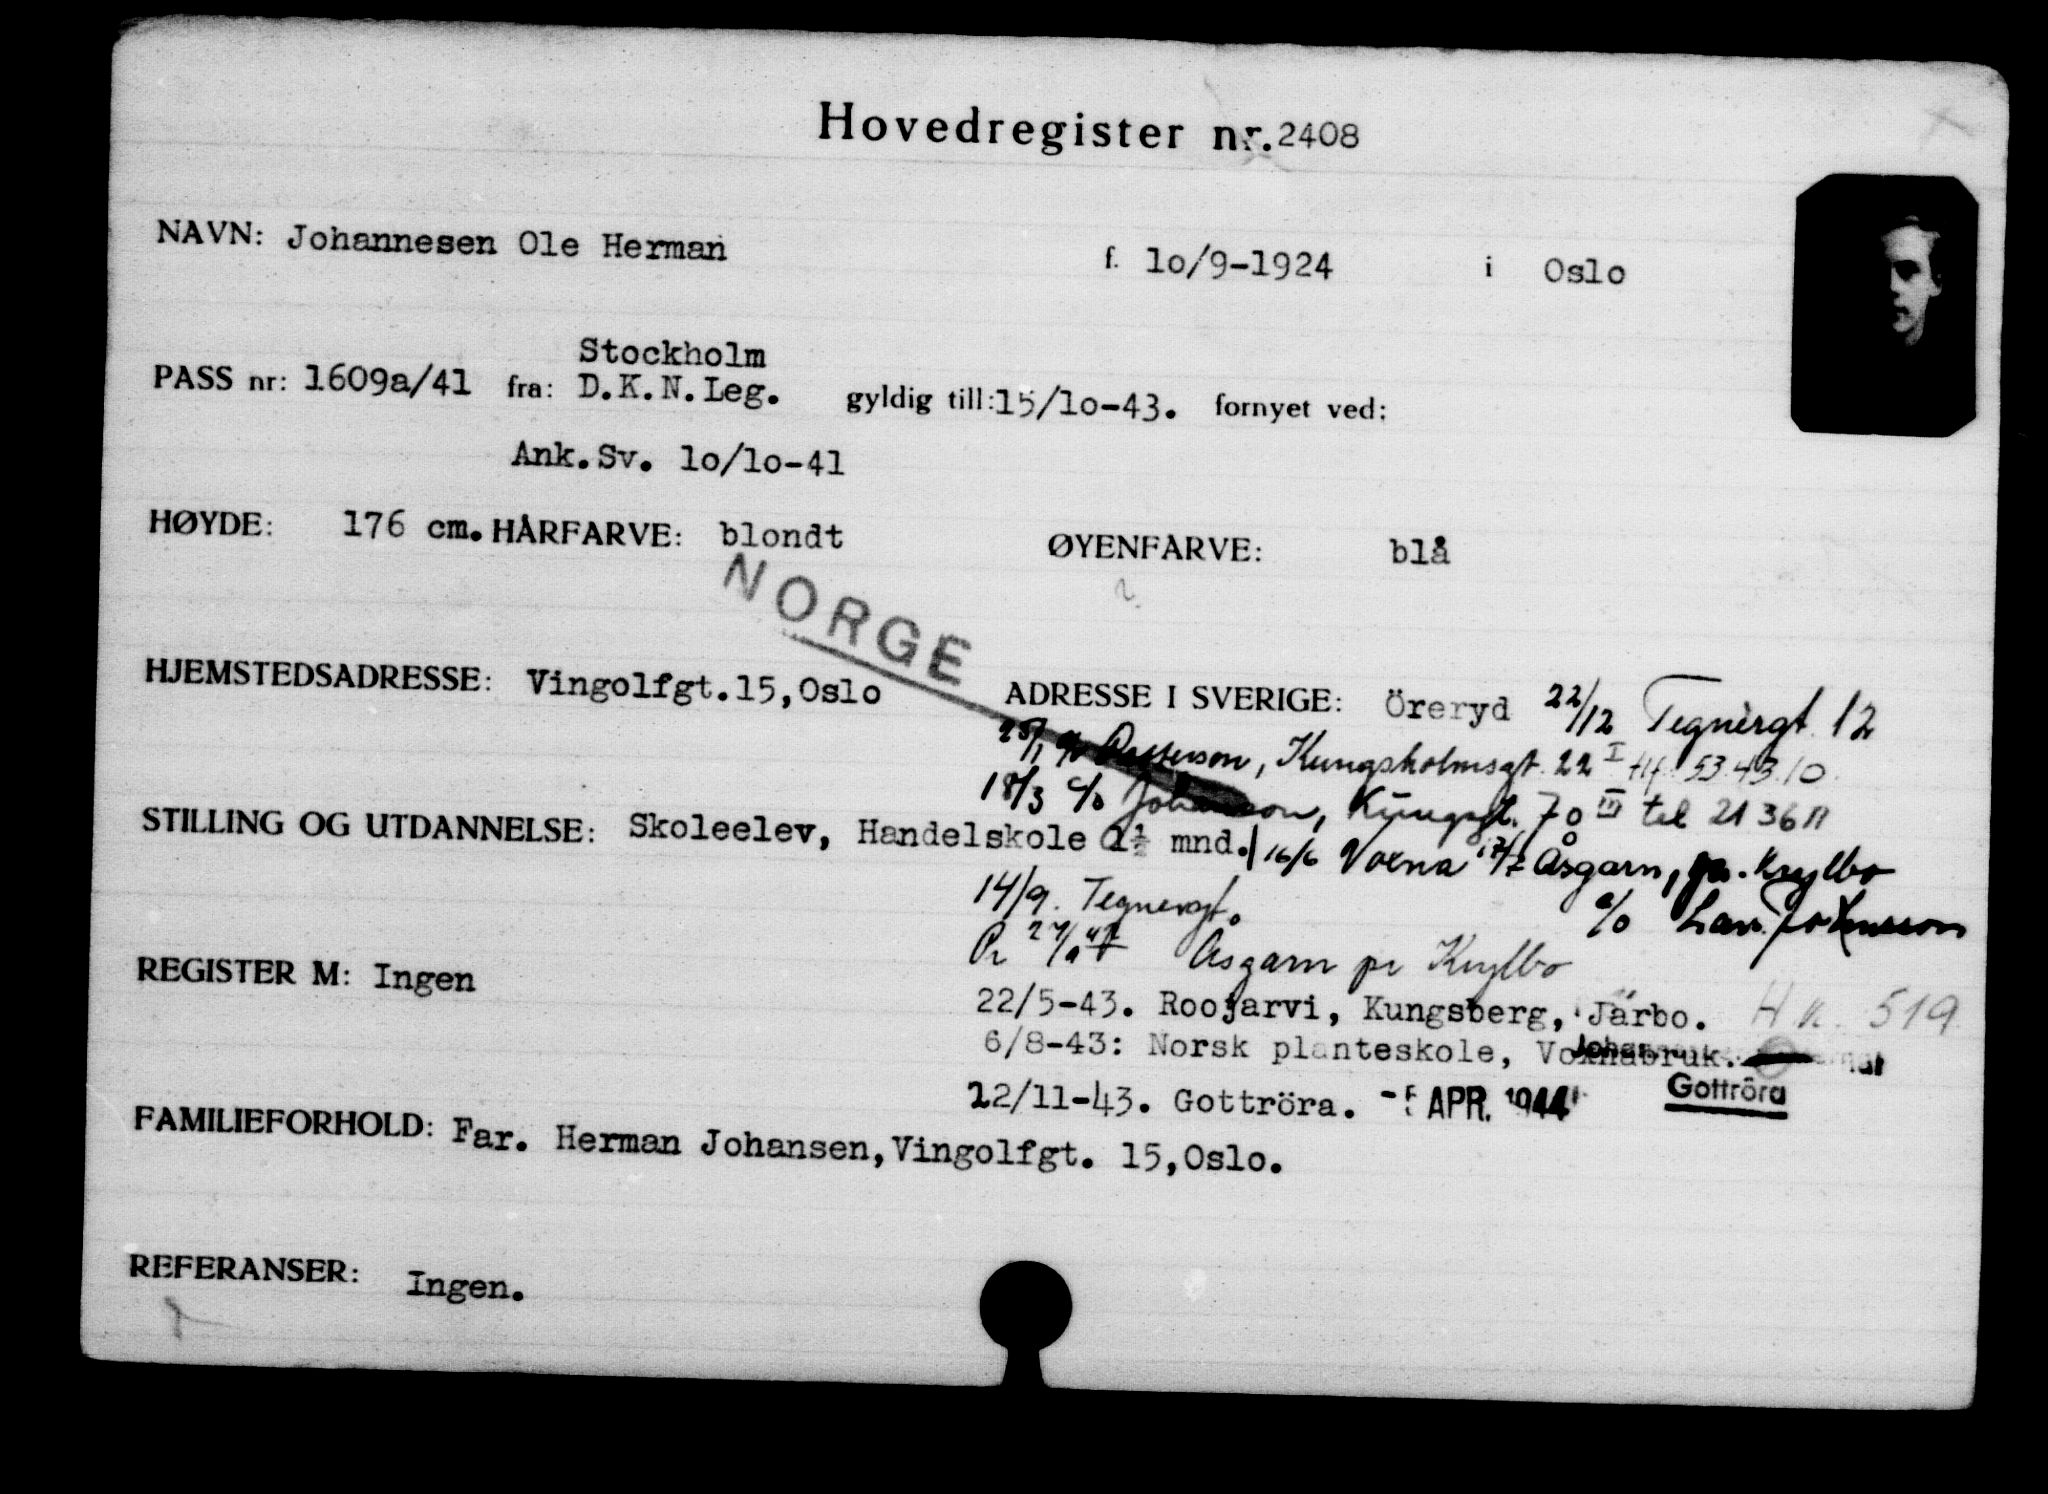 Hovedregister nr. 2408
NAVN: Johannesen Ole Herman f. 10/9-1924 i Oslo
Stockholm
PASS nr: 1609a/41 fra: D.K.N.Leg. gyldig till: 15/10-43. fornyet ved:
Ank.Sv. 10/10-41
HØYDE: 176 cm. HÅRFARVE: blondt ØYENFARVE: blå
NORGE
HJEMSTEDSADRESSE: Vingolfgt.15,Oslo ADRESSE I SVERIGE: Öreryd 22/12 Tegnérgt. 12
c/o Petterson, Kungsholmsgt. 22 I tlf. 53.43.10.
18/3 c/o Johansson, Kungsgt. 70 III tel 21 36 11
STILLING OG UTDANNELSE: Skoleelev, Handelskole 1½ mnd. 16/6 Voxna Åsgarn, pr. Krylbo
14/9. Tegnergt. c/o Johnsson
Pr Åsgarn pr Krylbo
REGISTER M: Ingen
22/5-43. Roojarvi, Kungsberg, Järbo. 519
6/8-43: Norsk planteskole, Voxnabruk.
12/11-43. Gottröra. -5 APR. 1944 Gottröra
FAMILIEFORHOLD: Far. Herman Johansen,Vingolfgt. 15,Oslo.
REFERANSER: Ingen.